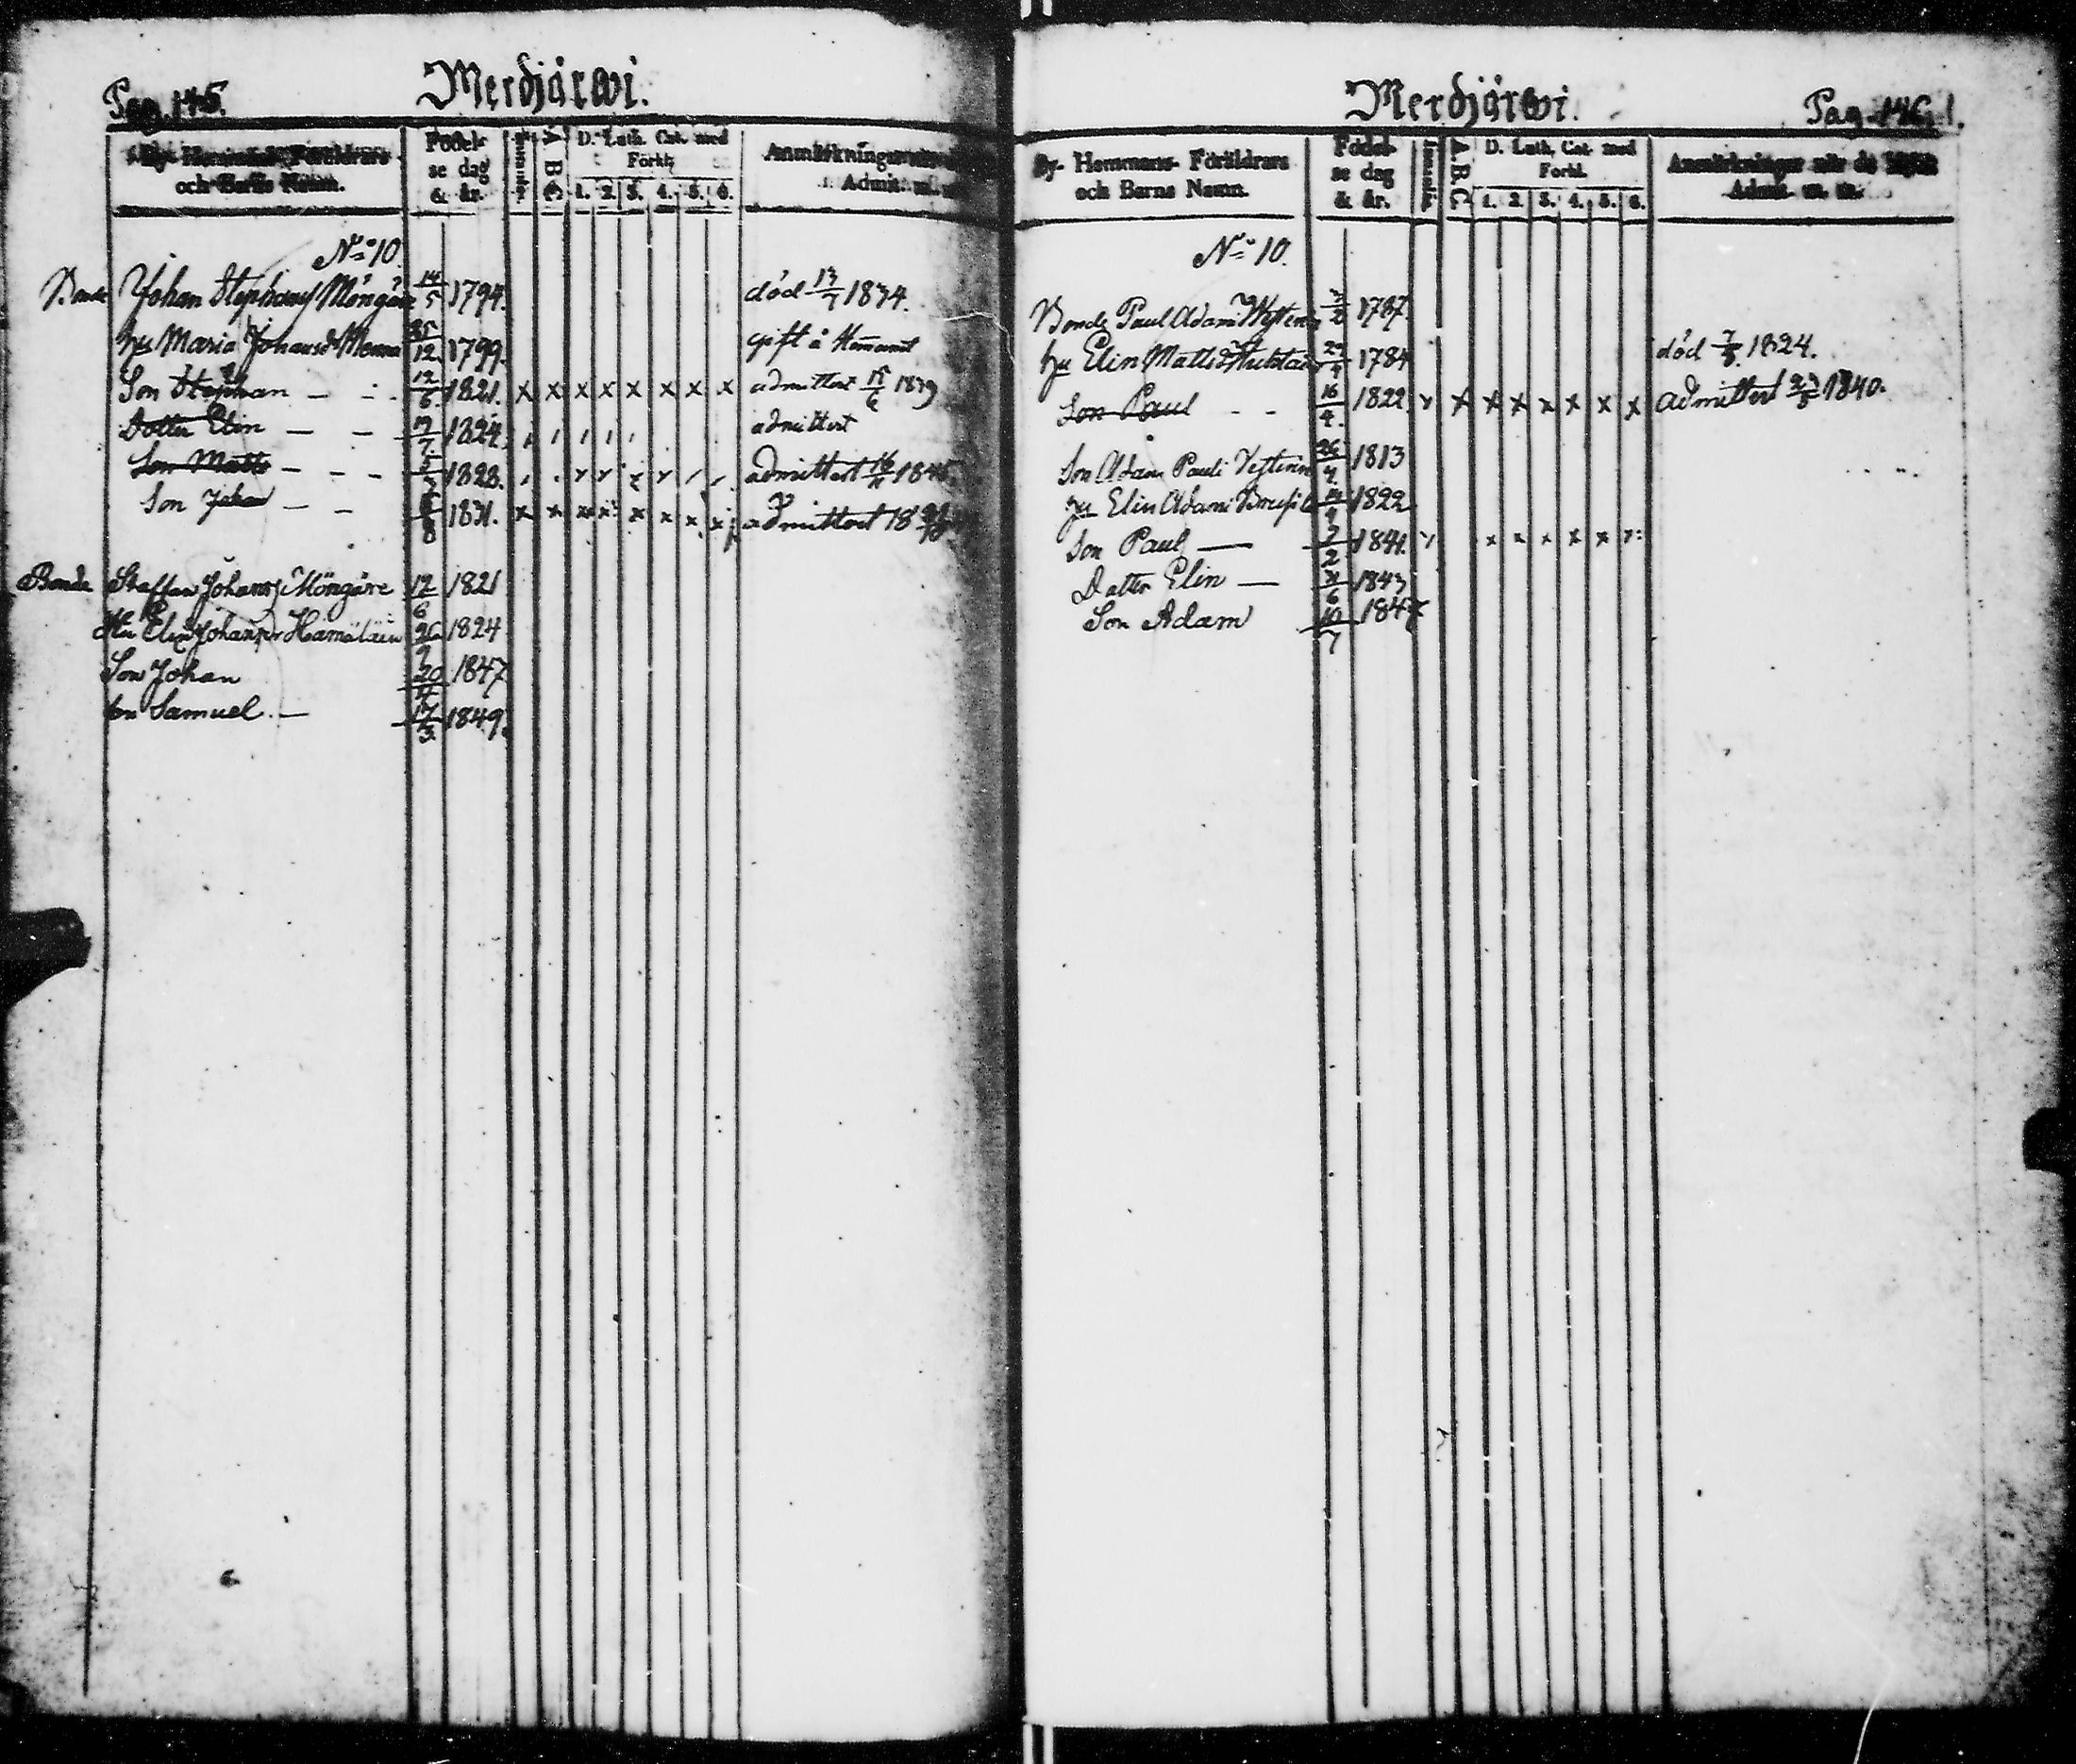 Pag. 145.
Merdjärwi.
By- Hemmans- Föräldrars
och Barns Namn.
Födel-
se dag
& år.
A B C
D. Luth. Cat. med
Förkl.
1. 2. 3. 4. 5. 6.
Anmärkningar
Admit.
No 10.
Bonde Johan Stephans Möngäre 14/5 1794. död 13/7 1834.
hu Maria Johansdr 12 1799. gift å Hemanet
Son Stephan — - 12/6 1821. x x x x x x x x admittert 1839
Dotter Elin — — 7 1824. admittert
Son Matts - - - 1828. admittert 1845.
Son Johan — — 8 1831. x x x x x x x x admittert 18
Bonde Staffan Johans Möngäre 12/6 1821
Hu Elin Johansdr Hämäläin 26/9 1824
Son Johan 20/11 1847
Son Samuel. — 17/3 1849.
Merdjärwi.
Pag. 146.
By- Hemmans- Föräldrars
och Barns Namn.
Födel-
se dag
& år.
A. B. C.
D. Luth. Cat. med
Förkl.
1. 2. 3. 4. 5. 6.
Anmärkningar när de
Admit. m. m.
No 10.
Bonde Paul Adami 2 1787.
hu Elin Mattsdr 1784 död 7/5 1824.
Son Paul - - 16/4 1822 x x x x x x x x admittert 23/5 1840.
Son Adam Pauli 26 1813
hu Elin Adami 1822
Son Paul — 2/2 1841. x x x x x
Dotter Elin — 6 1843
Son Adam 10/7 1847